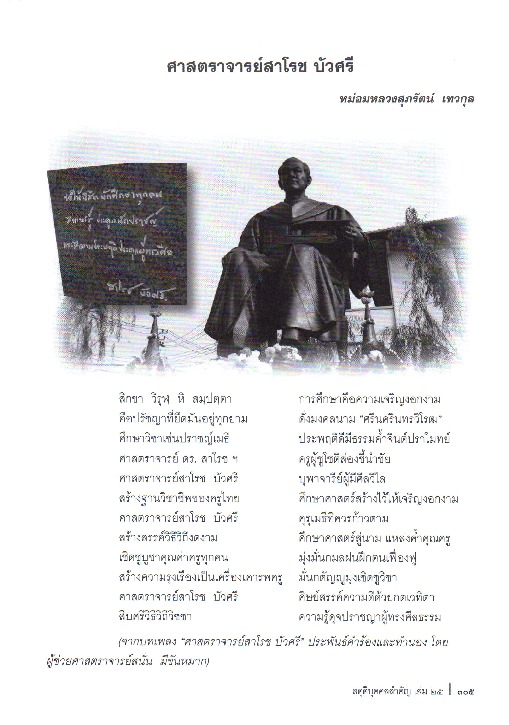 ศาสตราจารย์สาโรช บัวศรี
หม่อมหลวงสุภรัตน์ เทวกุล
สิกขา วิรุฬฺ หิ สมฺปตฺตา การศึกษาคือความเจริญงอกงาม
คือปรัชญาที่ยึดมั่นอยู่ทุกยาม ดังมงคลนาม "ศรีนครินทรวิโรฒ"
ศึกษาวิชาเช่นปราชญ์เมธี ประพฤติดีมีธรรมค้ำจินต์ปราโมทย์
ศาสตราจารย์ ดร. สาโรช ฯ ครูผู้ชูโชติส่องชี้นำชัย
ศาสตราจารย์สาโรช บัวศรี บุพาจารีย์ผู้มีศีลวิไล
สร้างฐานวิชาชีพของครูไทย ศึกษาศาสตร์สร้างไว้ให้เจริญงอกงาม
ศาสตราจารย์สาโรช บัวศรี คุรุเมธีที่ควรก้าวตาม
สร้างสรรค์วิธีวิถีงดงาม ศึกษาศาสตร์สู่นาม แหล่งค้ำคุณครู
เชิดชูบูชาคุณค่าครูทุกคน มุ่งมั่นกมลฝนฝึกตนเฟื่องฟู
สร้างความรุ่งเรืองเป็นเครื่องเคารพครู มั่นกตัญญูมุ่งเชิดชูวิชา
ศาสตราจารย์สาโรช บัวศรี ศิษย์สรรค์ความดีด้วยกตเวทิตา
สืบศรีวิธีวิถีวิชชา ความรู้ดุจปราชญาผู้ทรงศีลธรรม
(จากบทเพลง "ศาสตราจารย์สาโรช บัวศรี" ประพันธ์คำร้องและทำนอง โดย
ผู้ช่วยศาสตราจารย์สนั่น มีขันหมาก)
สดุดีบุคคลสำคัญ เล่ม ๒๕ | ๓๐๕